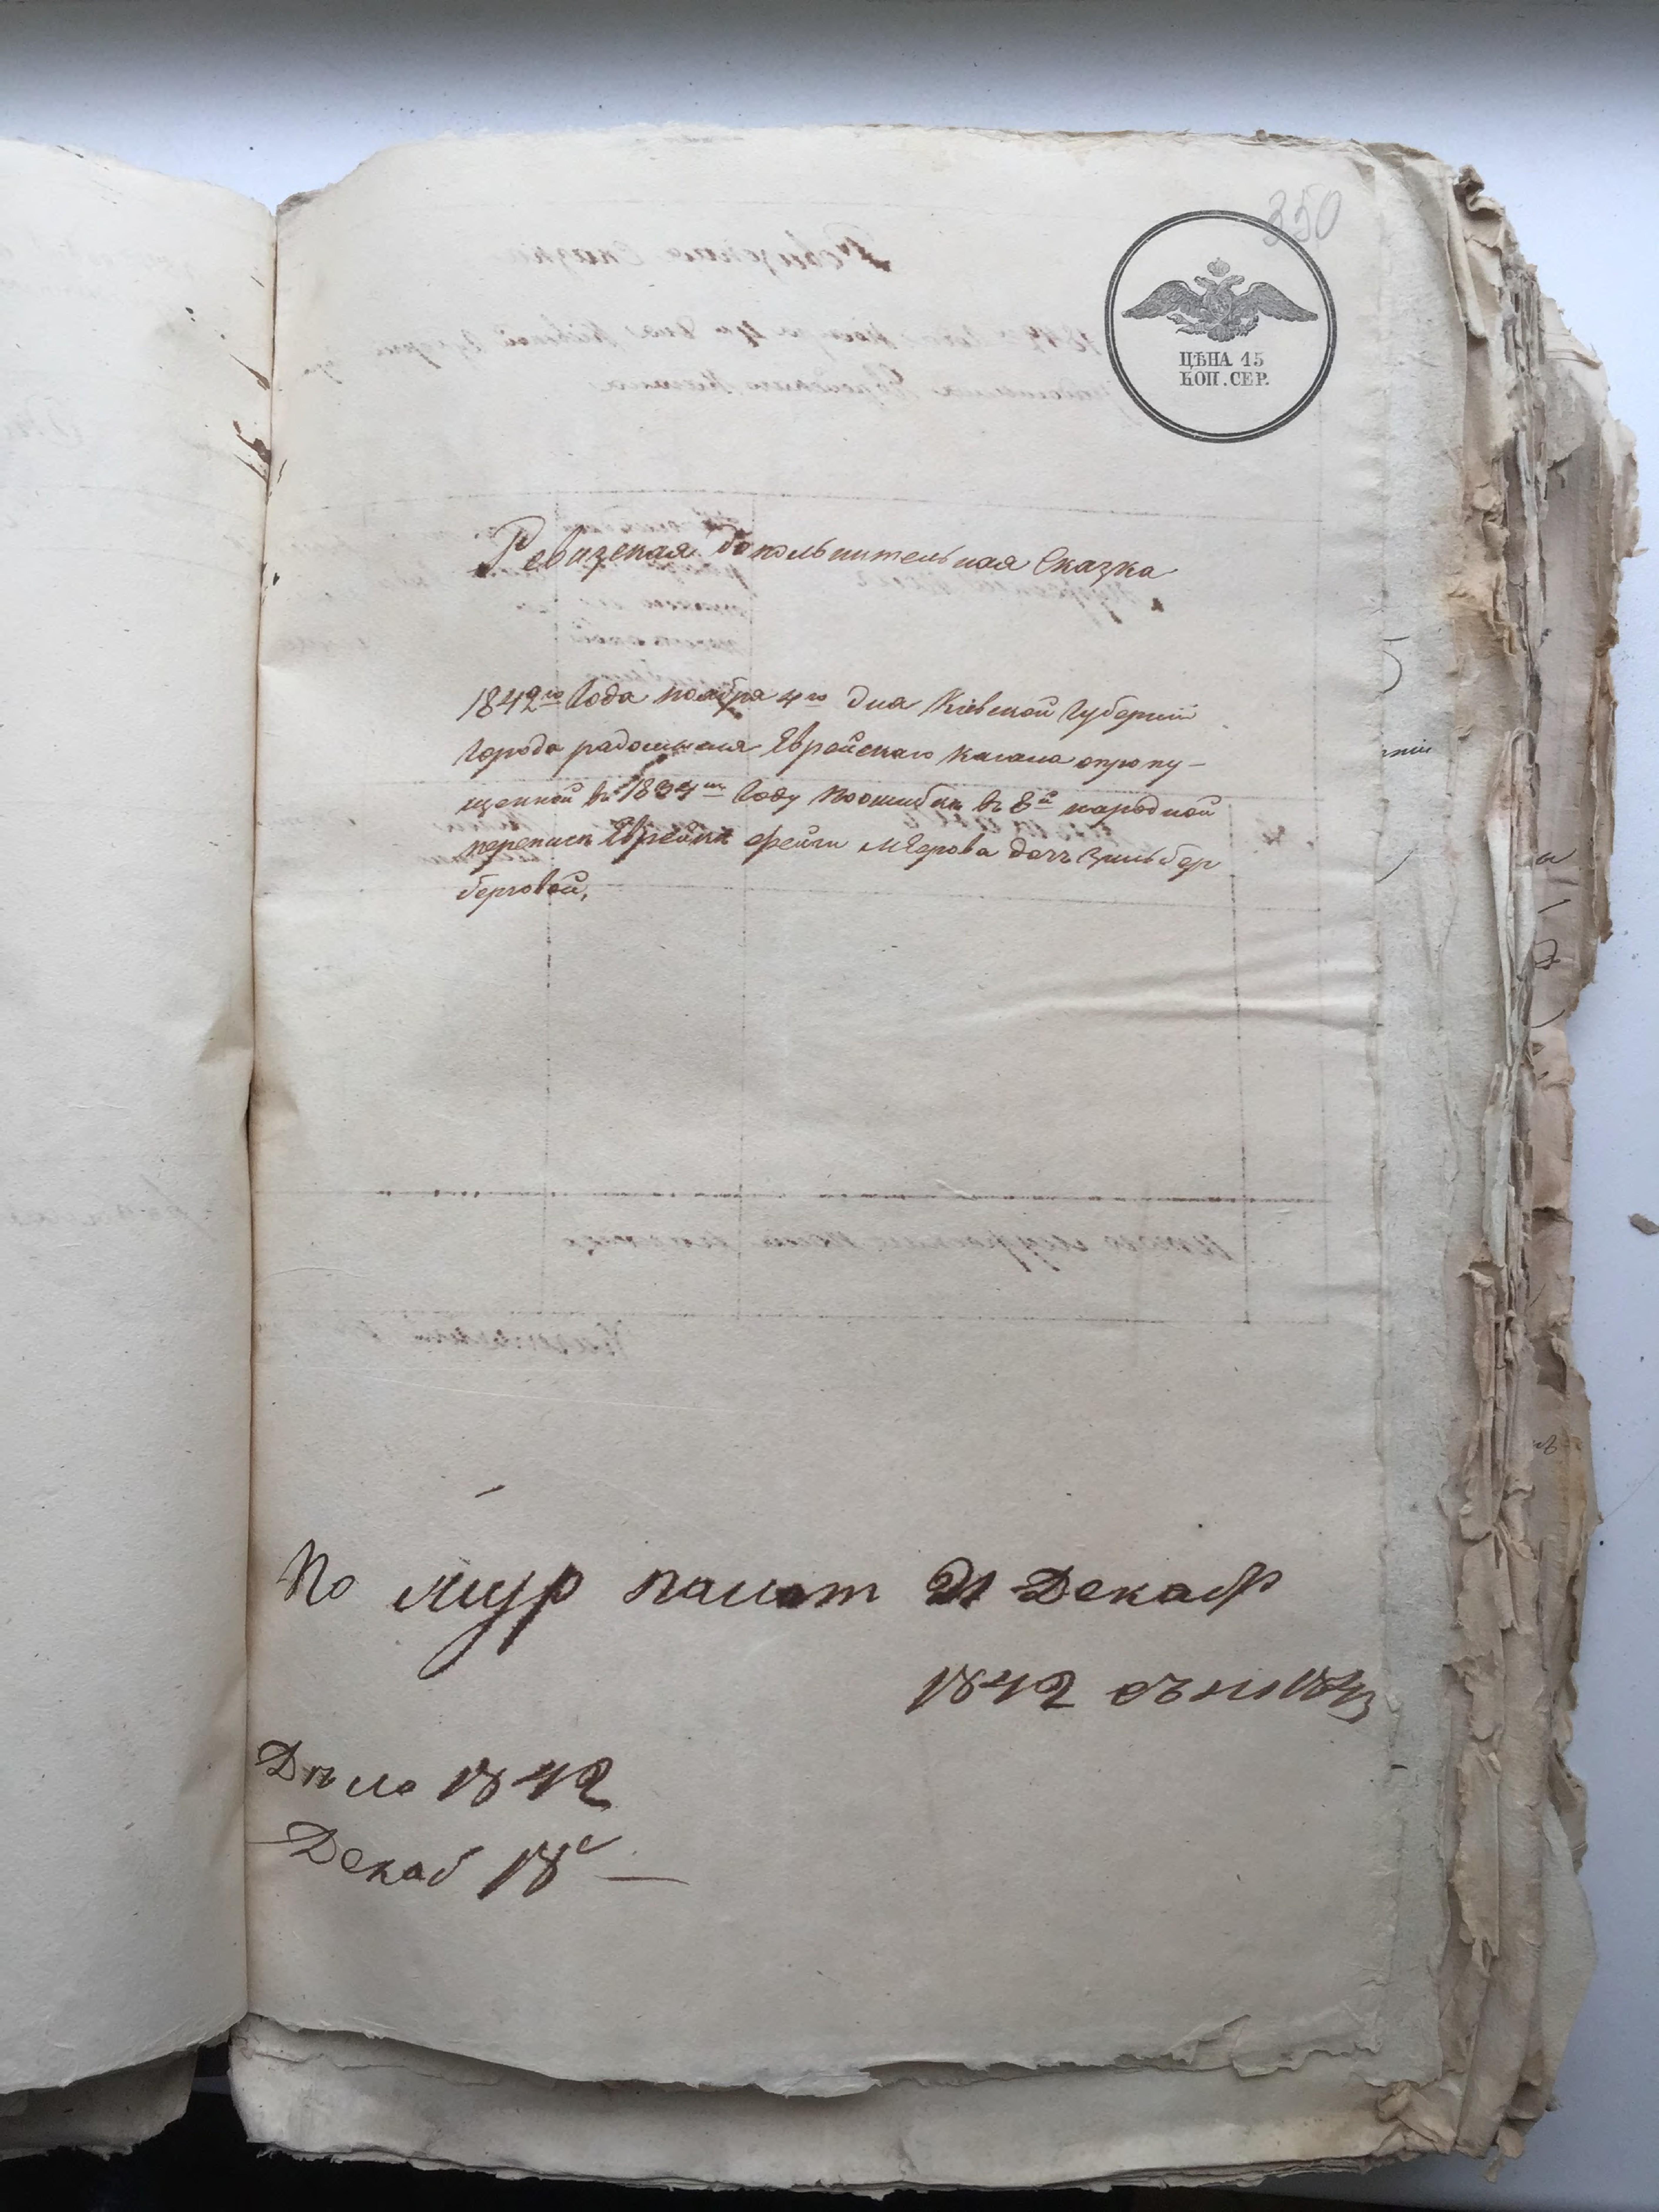 350
ЦѢНА 15
КОП. СЕР.
Ревизская дополнительная Сказка
1842го Года ноября 4го дня Кіевской Губерніи
Города радомысля Еврейскаго Кагала о пропу-
щенной въ 1834мъ Году по ошибкѣ въ 8й народной
переписѣ Еврейкѣ Фейги Мерова дочъ Зильбер
берговой,
По журналу 21 Декабр
1842
Дѣло 1842
Декаб 18